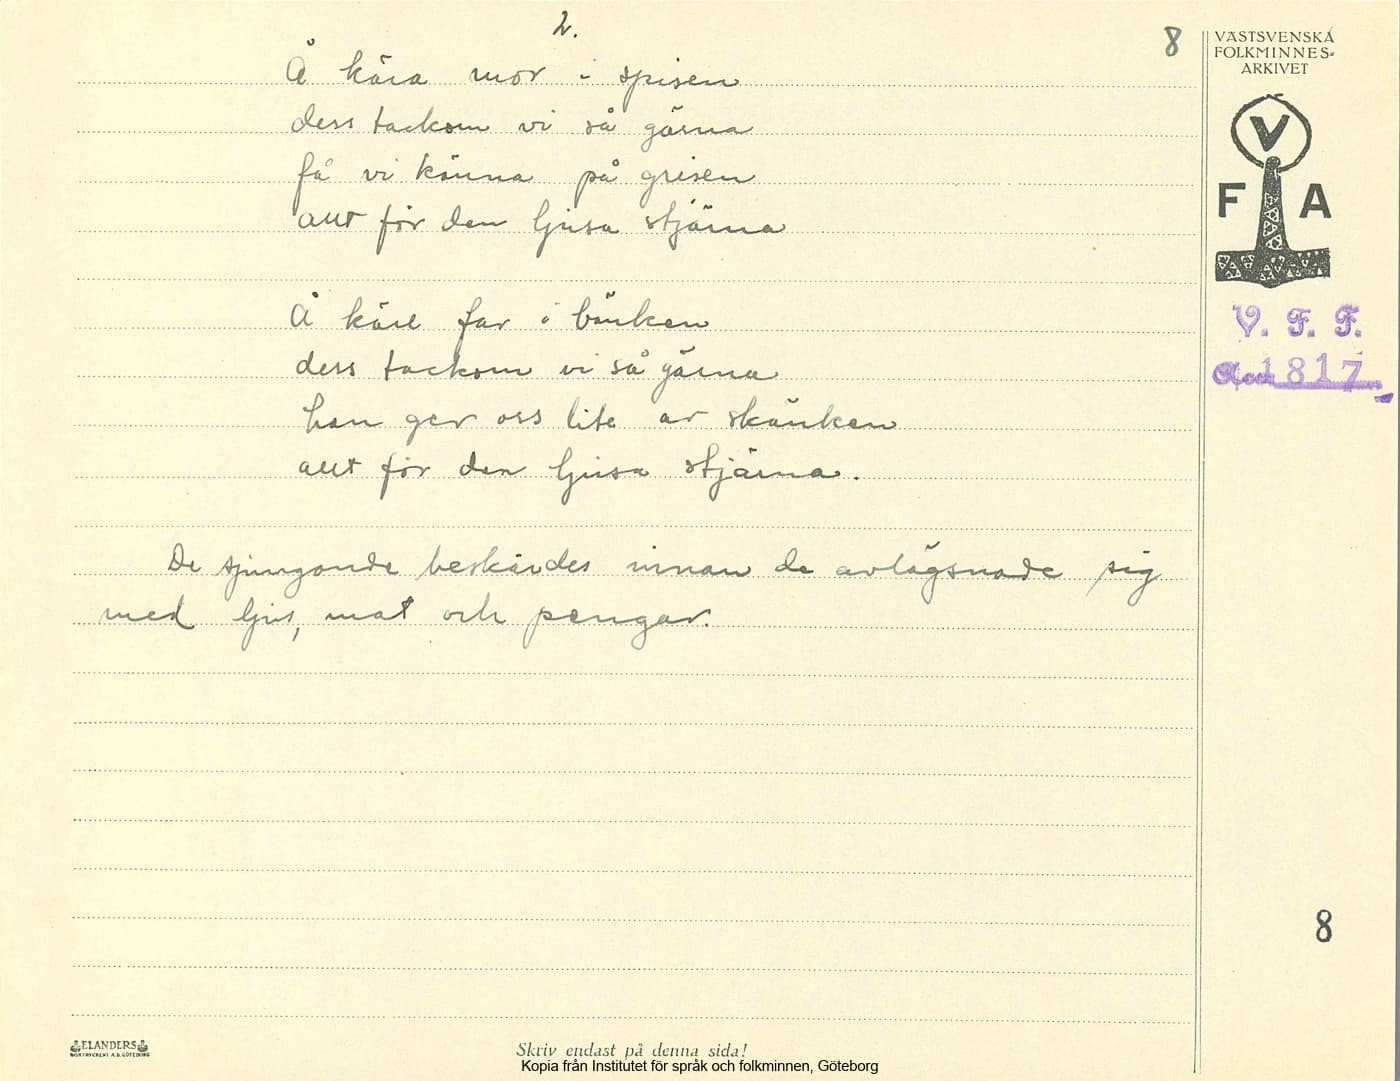 2.
8
VÄSTSVENSKA
FOLKMINNES-
ARKIVET
V
F A
V. F. F.
Acc 1817
Å kära mor i spisen
dess tackom vi så gärna
få vi känna på grisen
allt för den ljusa stjärna
Å käre far i bänken
dess tackom vi så gärna
han ger oss lite av skänken
allt för den ljusa stjärna.
De sjungande beskärdes innan de avlägsnade sig
med ljus, mat och pengar.
8
ELANDERS
BOKTRYCKERI A.B. GÖTEBORG
Skriv endast på denna sida!
Kopia från Institutet för språk och folkminnen, Göteborg